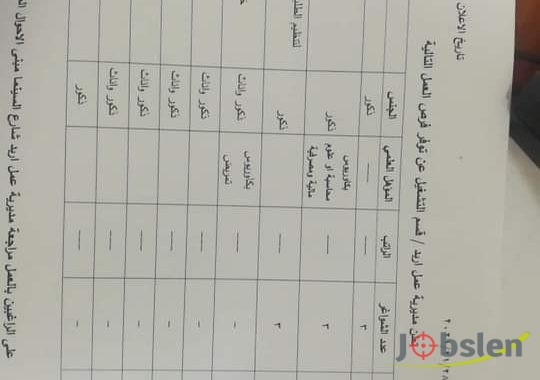 تاريخ الاعلان
مديرية عمل اربد / قسم التشغيل عن توفر فرص العمل التالية
الجنس
المؤهل العلمي
الراتب
عدد الشواغر
ذكور
——
——
٣
ذكور
بكالوريوس
محاسبة او علوم
مالية ومصرفية
——
٣
لتنظيم
ذكور
——
٣
ذكور واناث
بكالوريوس
تمريض
——
-
ذكور واناث
——
-
ذكور واناث
——
-
ذكور واناث
——
-
ذكور واناث
——
-
ذكور
——
-
على الراغبين بالعمل مراجعة مديرية عمل اربد شارع السينما مبنى الاحوال
Jobslen